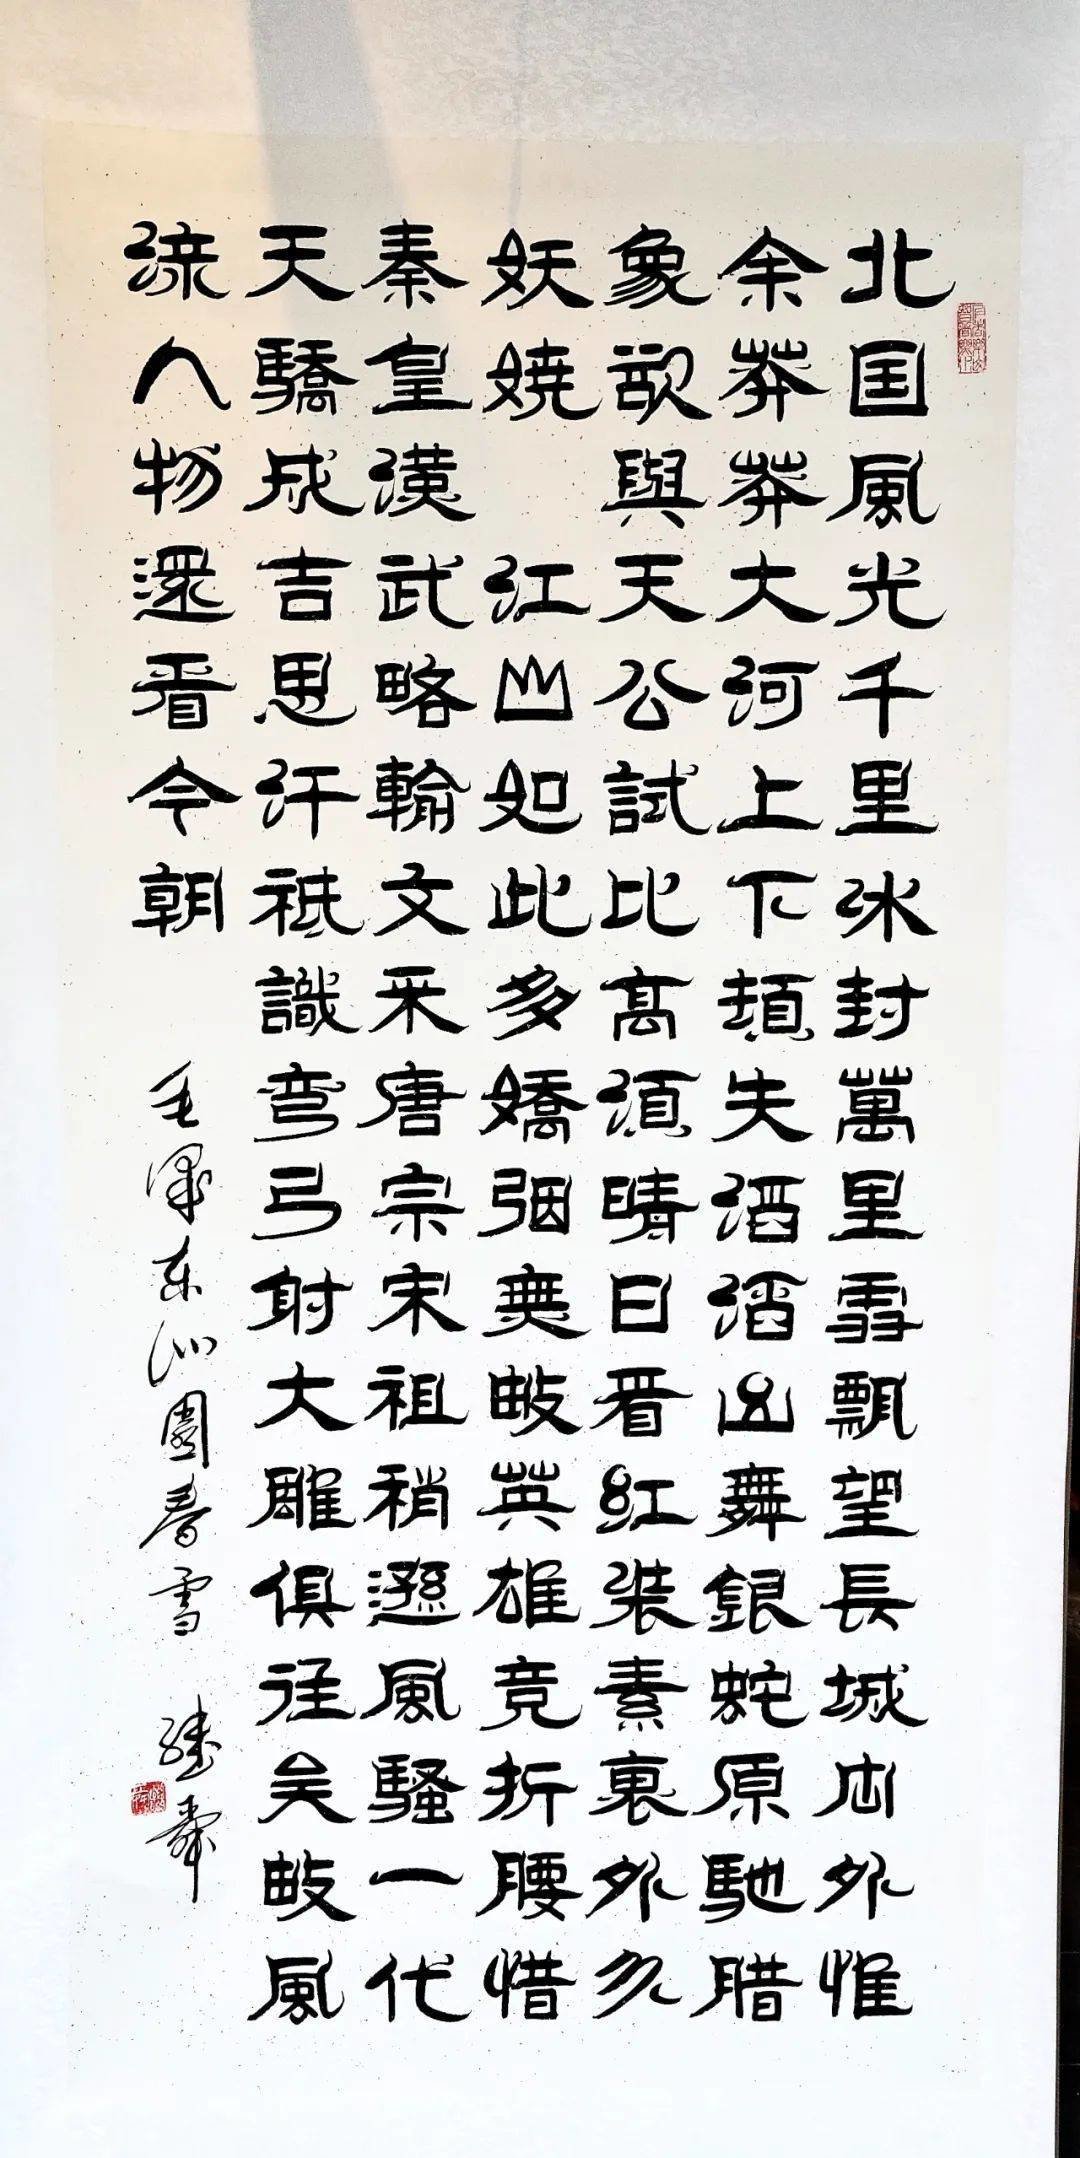 北国風光千里冰封萬里雪飄望長城内外惟
余莽莽大河上下頓失滔滔山舞銀蛇原馳腊
象欲與天公試比高須晴日看紅裝素裹外分
妖嬈 江山如此多嬌引無數英雄竞折腰惜
秦皇漢武略輸文采唐宗宋祖稍遜風騷一代
天驕成吉思汗祗識弯弓射大雕俱往矣數風
流人物還看今朝
毛澤东沁園春雪